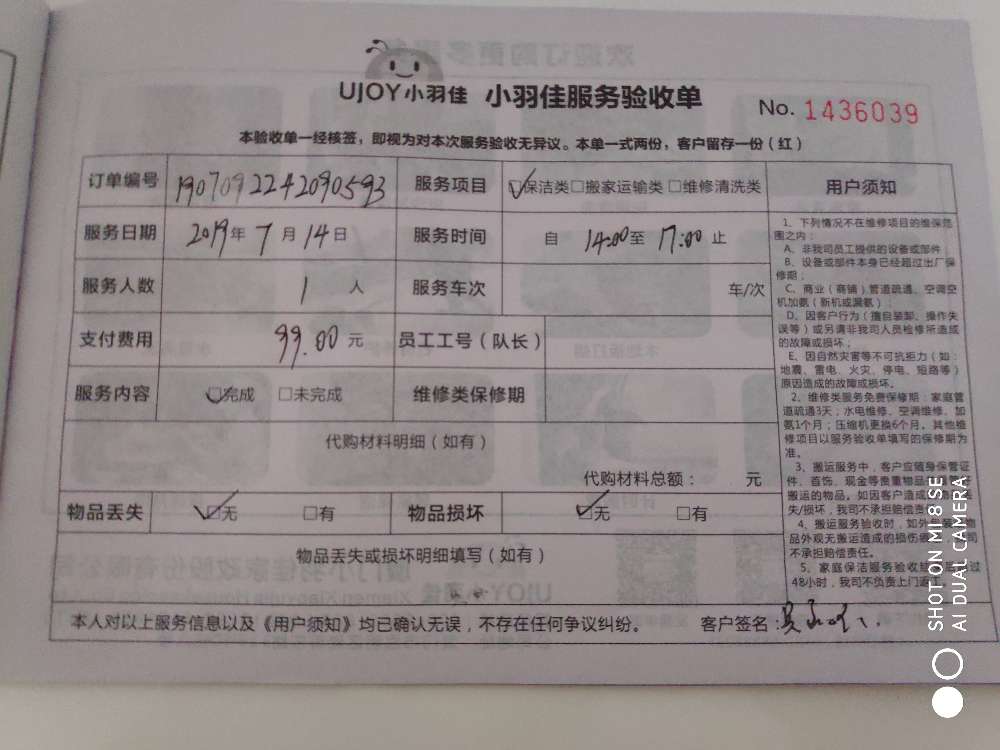 UJOY小羽佳 小羽佳服务验收单 No. 1436039
本验收单一经核签，即视为对本次服务验收无异议。本单一式两份，客户留存一份（红）
订单编号 1907092242090593 服务项目 ☑保洁类□搬家运输类□维修清洗类
服务日期 2019年7月14日 服务时间 自 14:00至 17:00 止
服务人数 1 人 服务车次 车/次
支付费用 99.00 元 员工工号（队长）
服务内容 ☑完成 □未完成 维修类保修期
代购材料明细（如有）
代购材料总额： 元
物品丢失 ☑无 □有 物品损坏 ☑无 □有
物品丢失或损坏明细填写（如有）
本人对以上服务信息以及《用户须知》均已确认无误，不存在任何争议纠纷。 客户签名：
用户须知
1、下列情况不在维修项目的维保范
围之内：
A、非我司员工提供的设备或部件
B、设备或部件本身已经超过出厂保
修期；
C、商业（商铺）管道疏通、空调空
机加氨（新机或漏氨）；
D、因客户行为（擅自装卸、操作失
误等）或另请非我司人员检修所造成
的故障或损坏；
E、因自然灾害等不可抗拒力（如：
地震、雷电、火灾、停电、短路等）
原因造成的故障或损坏。
2、维修类服务免费保修期：家庭管
道疏通3天；水电维修、空调维修、加
氨1个月；压缩机更换6个月。其他维
修项目以服务验收单填写的保修期为
准。
3、搬运服务中，客户应随身保管证
件、首饰、现金等贵重物品
搬运的物品。如因客户造成
失/损坏，我司不承担赔偿责
4、搬运服务验收时，如外包装
品外观无搬运造成的损伤
不承担赔偿责任。
5、家庭保洁服务验收
48小时，我司不负责上门返工。
SHOT ON MI 8 SE
AI DUAL CAMERA